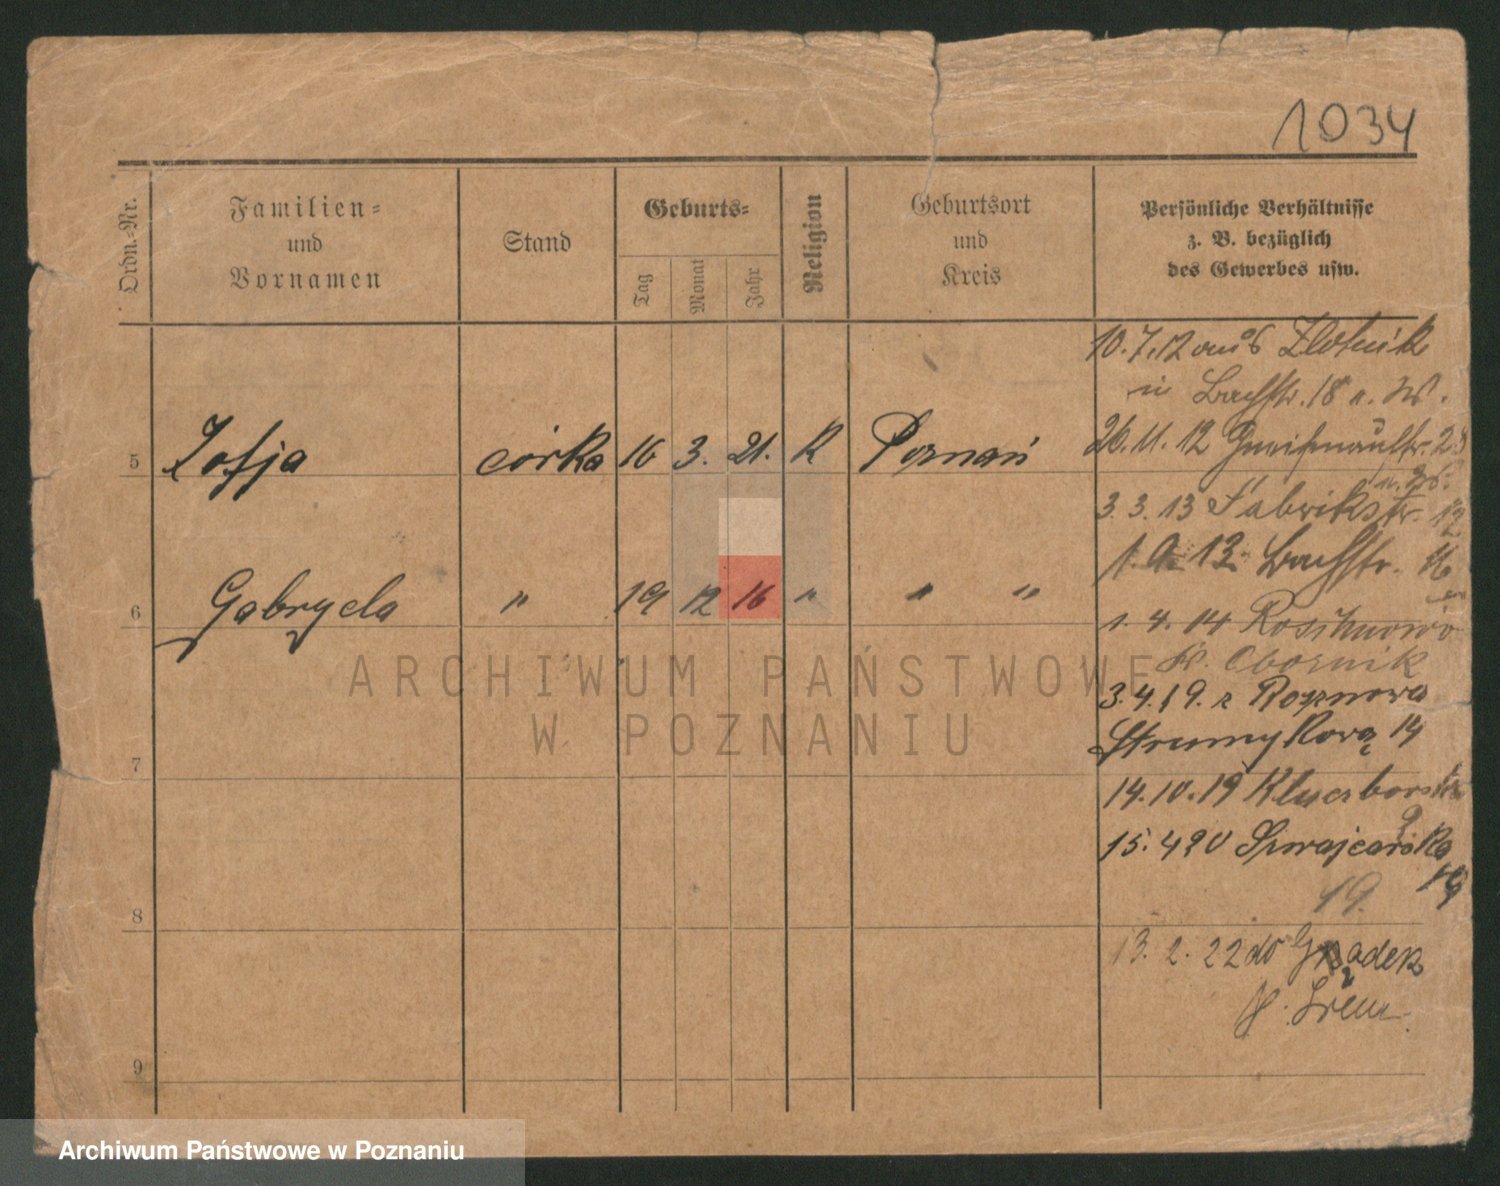 1034
Ordn.-Nr.
Familien-
und
Vornamen
Stand
Geburts-
Tag
Monat
Jahr
Religion
Geburtsort
und
Kreis
Persönliche Verhältnisse
z. B. bezüglich
des Gewerbes usw.
10.7.12 aus Zlotnik
in Bachstr. 18
5 Zofja córka 16 3. 21. K Poznań
26.11.12 Gneisenaustr.
3.3.13 Fabrikstr. 12
1.9.13 Bachstr. 16
6 Gabryela " 19 12 16 " " "
1.4.14
Kr. Obornik
3.4.19. z Rożnowa
Strumykową 14
7
14.10.19
15.4 20 Szwajcarska
19
19.
8
13.2.22 do Gądek
p. Śrem
9
ARCHIWUM PAŃSTWOWE
W POZNANIU
Archiwum Państwowe w Poznaniu